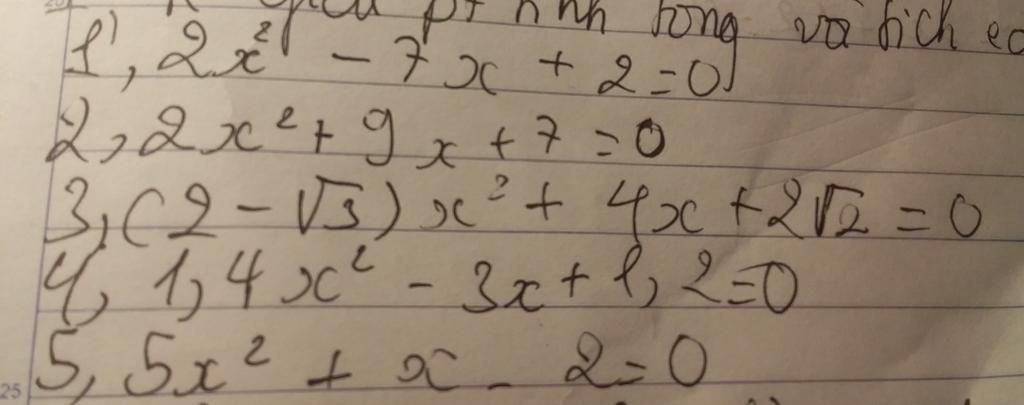 giải pt tính tổng và tích
1, 2x² - 7x + 2 = 0
2, 2x² + 9x + 7 = 0
3, (2 - √3)x² + 4x + 2√2 = 0
4, 1,4x² - 3x + 1,2 = 0
5, 5x² + x - 2 = 0
25